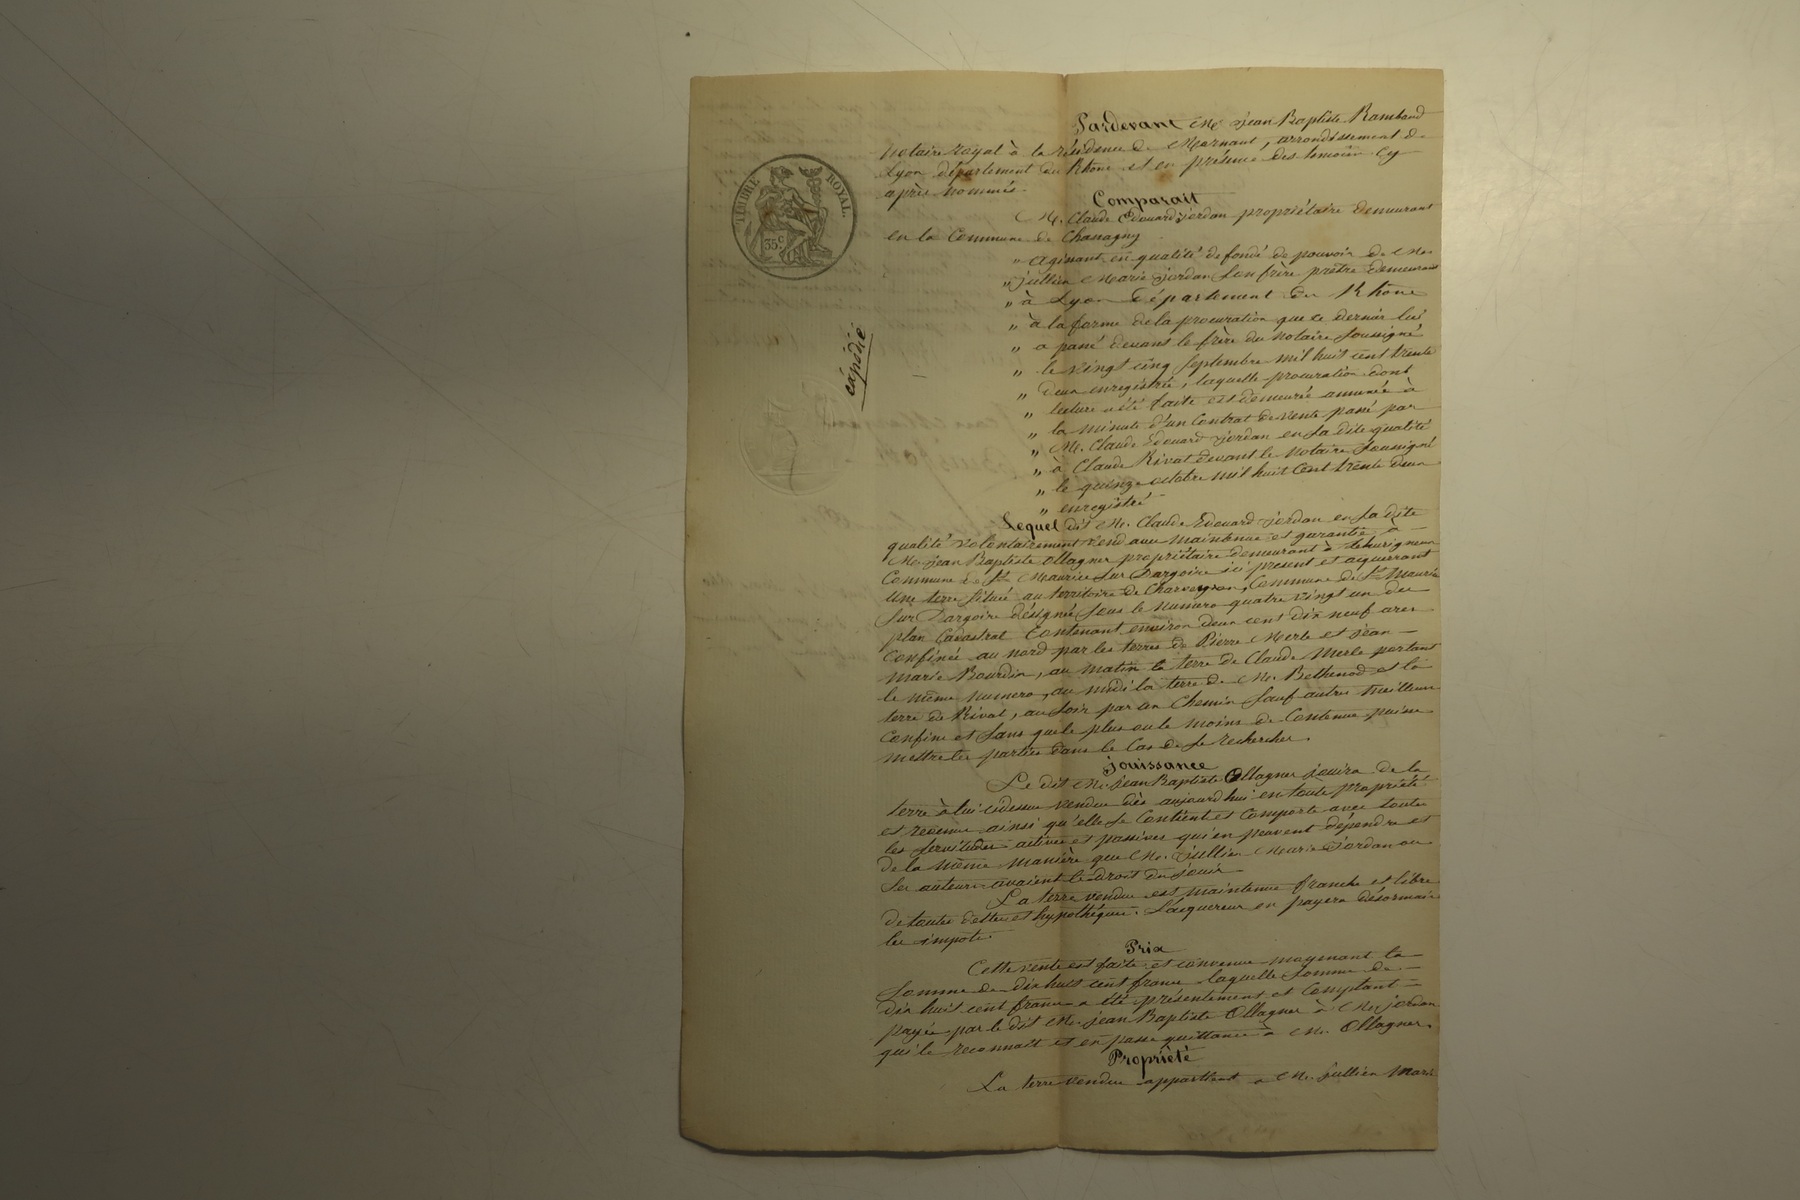 TIMBRE ROYAL.
35.c
expédié
Pardevant Me Jean Baptiste Rambaud
notaire royal à la résidence de Mornant, arrondissement de
Lyon département du Rhône et en présence des temoins cy
après nommés.
Comparait
M. Claude Edouard jordan propriétaire demeurant
en la Commune de Chassagny
" agissant en qualité de fondé de pouvoir de Mr.
" jullien Marie jordan son frère prêtre demeurant
" à Lyon département du Rhône
" à la forme de la procuration que ce dernier lui
" a passé devant le frère du notaire soussigné
" le vingt cinq septembre mil huit cent trente
" deux enregistrée, laquelle procuration dont
" lecture a été faite est demeurée annexée à
" la minute d'un contrat de vente passé par
" M. Claude Edouard jordan en sa dite qualité
" à Claude Rivat devant le notaire soussigné
" le quinze octobre mil huit cent trente deux
" enregistré
Lequel dit M. Claude Edouard jordan en sa dite
qualité volontairement vend avec maintenue et garantie à
Me jean Baptiste Ollagner propriétaire demeurant à
Commune de St. Maurice sur Dargoire ici present et acquerrant
Une terre située au territoire de Charvegron, Commune de St. Maurice
sur Dargoire désignée sous le numero quatre vingt un du
plan Cadastral Contenant environ deux cent dix neuf ares
Confinée au nord par les terres de Pierre Merle et jean
marie Bourdin, au matin la terre de Claude Merle portant
le même numero, au midi la terre de M. Bethenod et la
terre de Rivat, au soir par un Chemin sauf autres meilleurs
Confins et sans que le plus ou le moins de Contenue puisse
mettre les parties dans le Cas de se rechercher.
jouissance
Le dit M. jean Baptiste Ollagner jouira de la
terre à lui cidessus vendue dès aujourd'hui en toute propriété
et revenus ainsi qu'elle se Contient et Comporte avec toutes
les servitudes actives et passives qui en peuvent dépendre et
de la même manière que M. jullien Marie jordan ou
ses auteurs avaient le droit d'en jouir
La terre vendue est maintenue franche et libre
de toutes dettes et hypothèques. L'acquereur en payera désormais
les impots.
Prix
Cette vente est faite et convenue moyenant la
somme de dix huit cent francs laquelle somme de
dix huit cent francs a été présentement et Comptant
payée par le dit M. jean Baptiste Ollagner à M. jordan
qui le reconnait et en passe quittance à M. Ollagner.
Propriété
La terre vendue appartient à M. jullien Marie